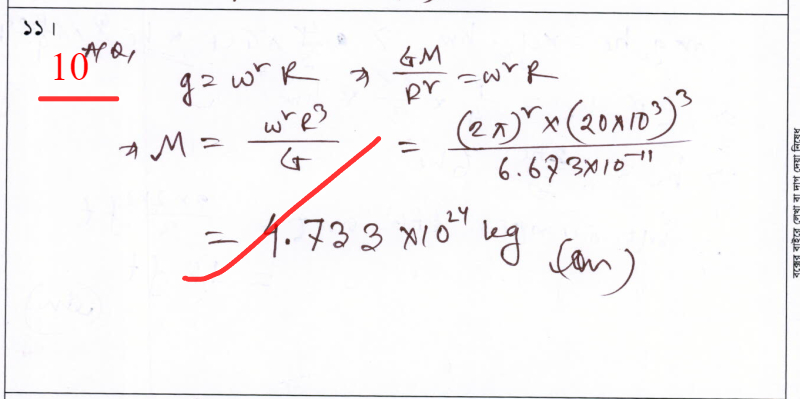 ১১।
10
g = ω² R ⇒ GM/R² = ω² R
⇒ M = ω²R³/G = (2π)² × (20×10³)³/6.673×10⁻¹¹
= 4.733 × 10²⁴ kg (Am)
বক্সের বাইরে লেখা বা দাগ দেয়া নিষেধ